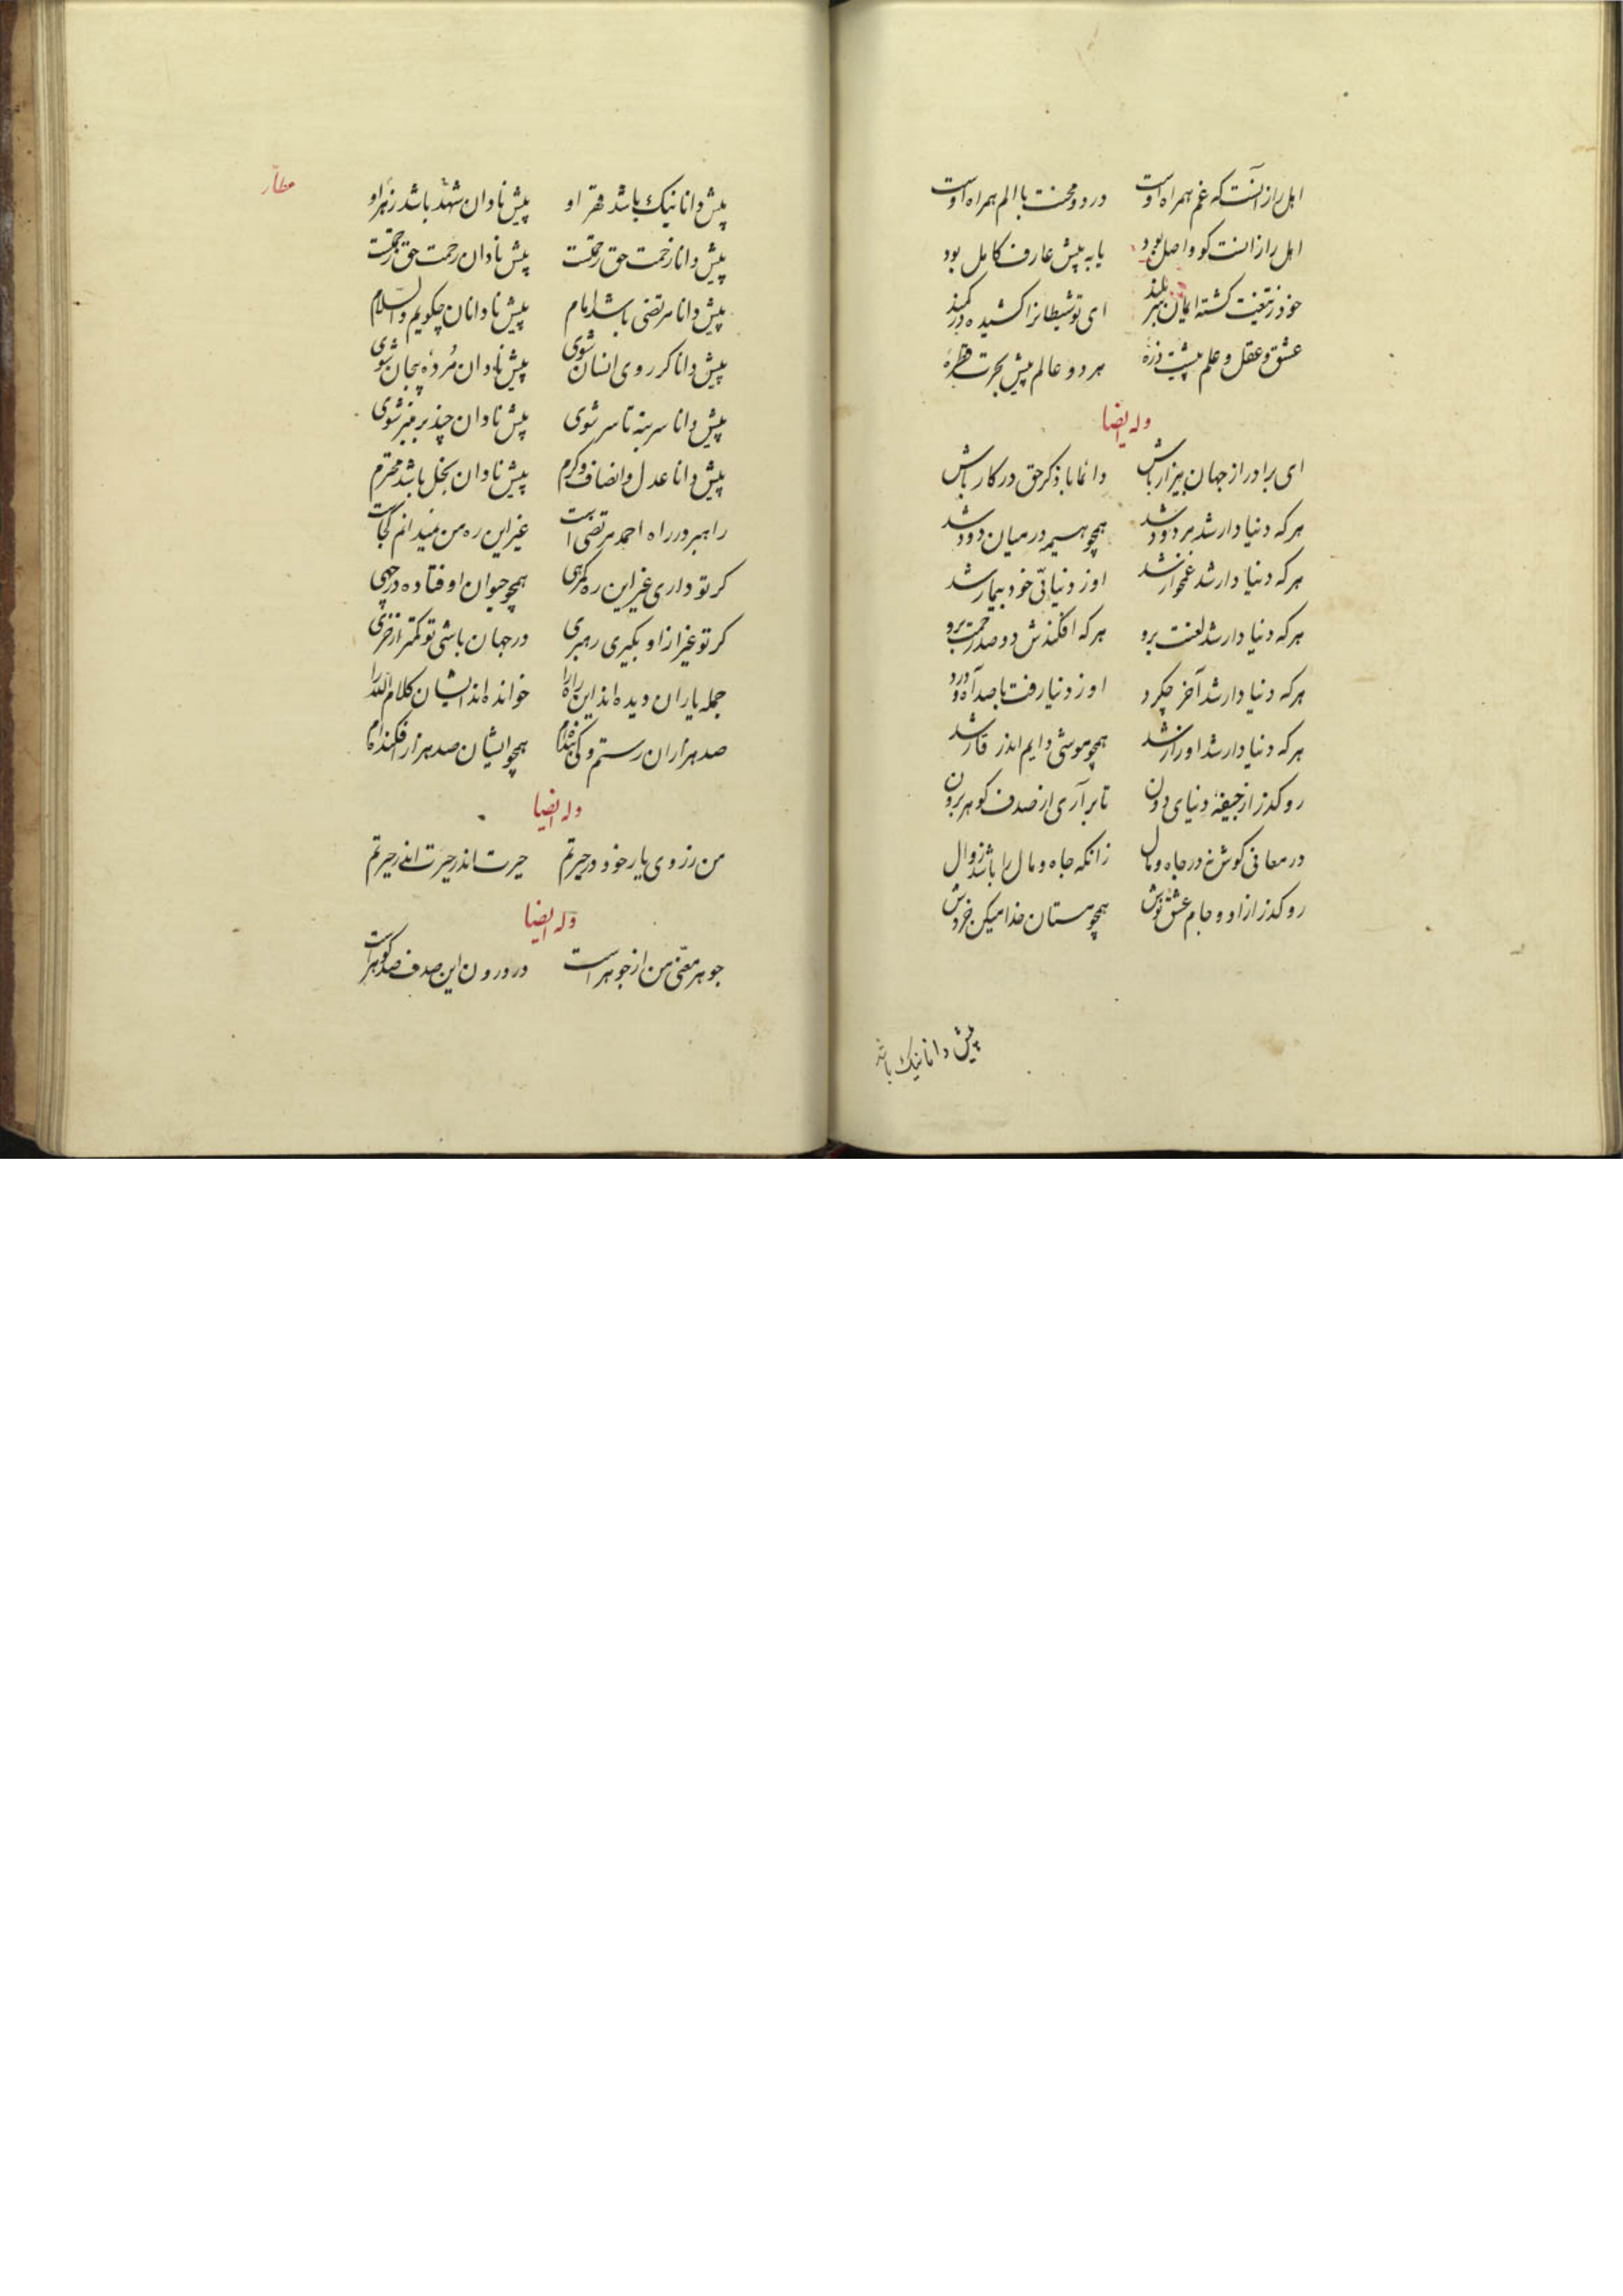 اهل راز آنست که غم همراه اوست درد و محنت با الم همراه اوست
اهل راز انست کو واصل بود یا به پیش عارف کامل بود
خود ز تیغت کشته ایمان ببر ای تو شیطانرا کشیده در کمند
عشق و عقل و علم پیشت ذرهٔ هر دو عالم پیش بحرت قطرهٔ
وله ایضا
ای برادر از جهان بیزار باش دائما با ذکر حق در کار باش
هرکه دنیا دار شد مردود شد همچو هیمه در میان دود شد
هرکه دنیا دار شد غمخوار شد او ز دنیائی خود بیمار شد
هرکه دنیا دار شد لعنت برو هرکه افکندش دو صد رحمت برو
هرکه دنیا دار شد آخر چکرد او ز دنیا رفت با صد آه و درد
هرکه دنیا دار شد او زار شد همچو موشی دایم اندر قار شد
رو کذر از جیفهٔ دنیای دون تا بر آری از صدف کوهر برون
در معانی کوش نه در جاه و مال زانکه جاه و مال را باشد زوال
رو کذر از او و جام عشق نوش همچو مستان خدا میکن خروش
پیش دانا نیک باشد
عطار
پیش دانا نیک باشد قهر او پیش نادان شهد باشد زهر او
پیش دانا رحمت حق رحمتست پیش نادان رحمت حق زحمتست
پیش دانا مرتضی باشد امام پیش نادانان چکویم والسلام
پیش دانا کر روی انسان شوی پیش نادان مرده بیجان شوی
پیش دانا سر بنه تا سر شوی پیش نادان چند بر منبر شوی
پیش دانا عدل و انصاف و کرم پیش نادان بخل باشد محترم
راهبر در راه احمد مرتضی است غیر این ره من نمیدانم کجاست
کر تو داری غیر این ره کمرهی همچو حیوان اوفتاده در چهی
کر تو غیر از او بکیری رهبری در جهان باشی تو کمتر از خری
جمله یاران دیده اند این راه را خوانده اند ایشان کلام الله را
صد هزاران رستم و کی بنده ام همچو ایشان صد هزار افکنده ام
وله ایضا
من ز روی یار خود در حیرتم حیرت اندر حیرت اندر حیرتم
وله ایضا
جوهر معنی من از جوهر است در درون این صدف صد کوهر است